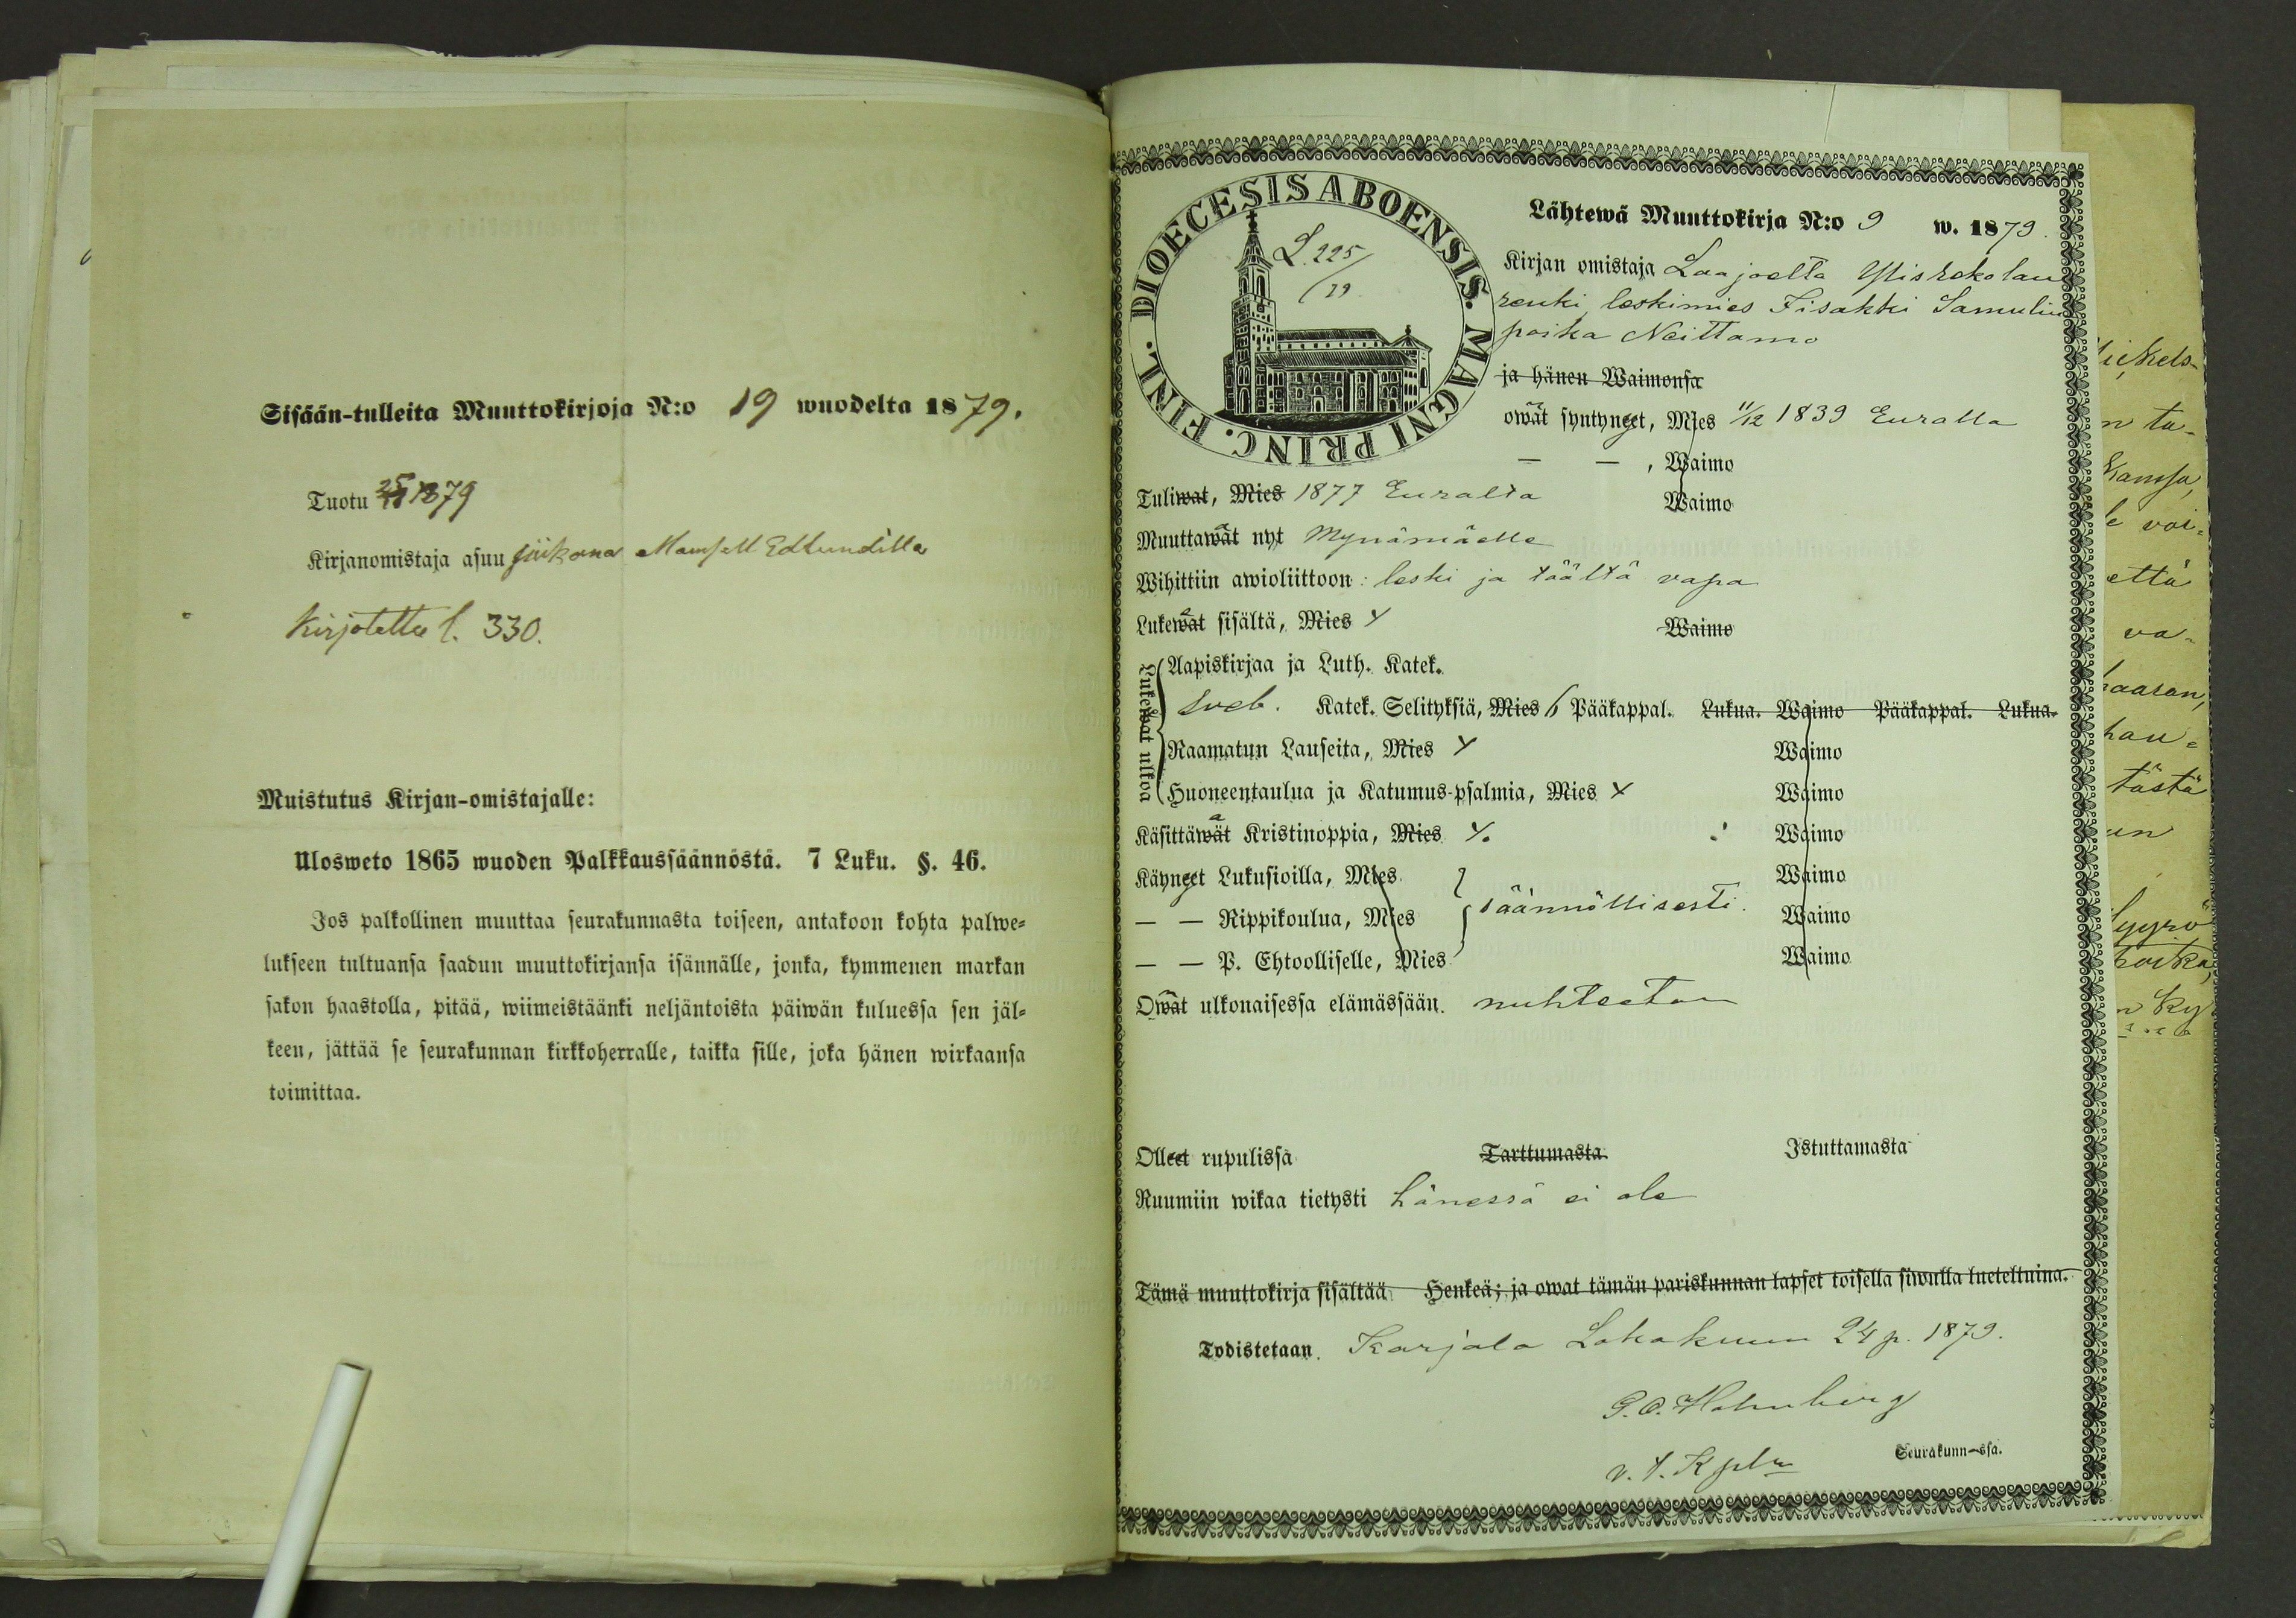 Sisään-tulleita Muuttokirjoja N:o 19 wuodelta 1879.
Tuotu 1879
Kirjanomistaja asuu Mamsell Edlundilla
Kirjotettu l. 330.
Muistutus Kirjan-omistajalle:
Ulosweto 1865 wuoden Palkkaussäännöstä. 7 Luku. §. 46.
Jos palkollinen muuttaa seurakunnasta toiseen, antakoon kohta palwe=
lukseen tultuansa saadun muuttokirjansa isännälle, jonka, kymmenen markan
sakon haastolla, pitää, wiimeistäänki neljäntoista päiwän kuluessa sen jäl=
keen, jättää se seurakunnan kirkkoherralle, taikka sille, joka hänen wirkaansa
toimittaa.
DIOECESIS ABOENSIS. MAGNI PRINC. FINL.
L. 225/
Lähtewä Muuttokirja N:o 9 w. 1879.
Kirjan omistaja Laajoelta Yliskekolan
renki, leskimies Iisakki Samulin
poika Neittamo
ja hänen Waimonsa
owat syntyneet, Mies 11/12 1839 Euralla
— — , Waimo
Tuliwat, Mies 1877 Euralta Waimo
Muuttawat nyt Mynämäelle
Wihittiin awioliittoon: leski ja täältä vapa
Lukewat sisältä, Mies Y Waimo
Lukewat ulkoa
Aapiskirjaa ja Luth. Katek.
Sveb. Katek. Selityksiä, Mies 6 Pääkappal. Lukua. Waimo Pääkappal. Lukua.
Raamatun Lauseita, Mies Y Waimo
Huoneentaulua ja Katumus-psalmia, Mies Y Waimo
Käsittäwät Kristinoppia, Mies Y. Waimo
Käyneet Lukusioilla, Mies Waimo
— — Rippikoulua, Mies säännöllisesti. Waimo
— — P. Ehtoolliselle, Mies Waimo
Owat ulkonaisessa elämässään. nuhteeton
Olleet rupulissa Tarttumasta Istuttamasta
Ruumiin wikaa tietysti hänessä ei ole
Tämä muuttokirja sisältää Henkeä; ja owat tämän pariskunnan lapset toisella siwulla lueteltuina.
Todistetaan. Karjala Lokakuun 24 p. 1879.
G. O. Holmberg
v. t. Kpln Seurakunn—ssa.